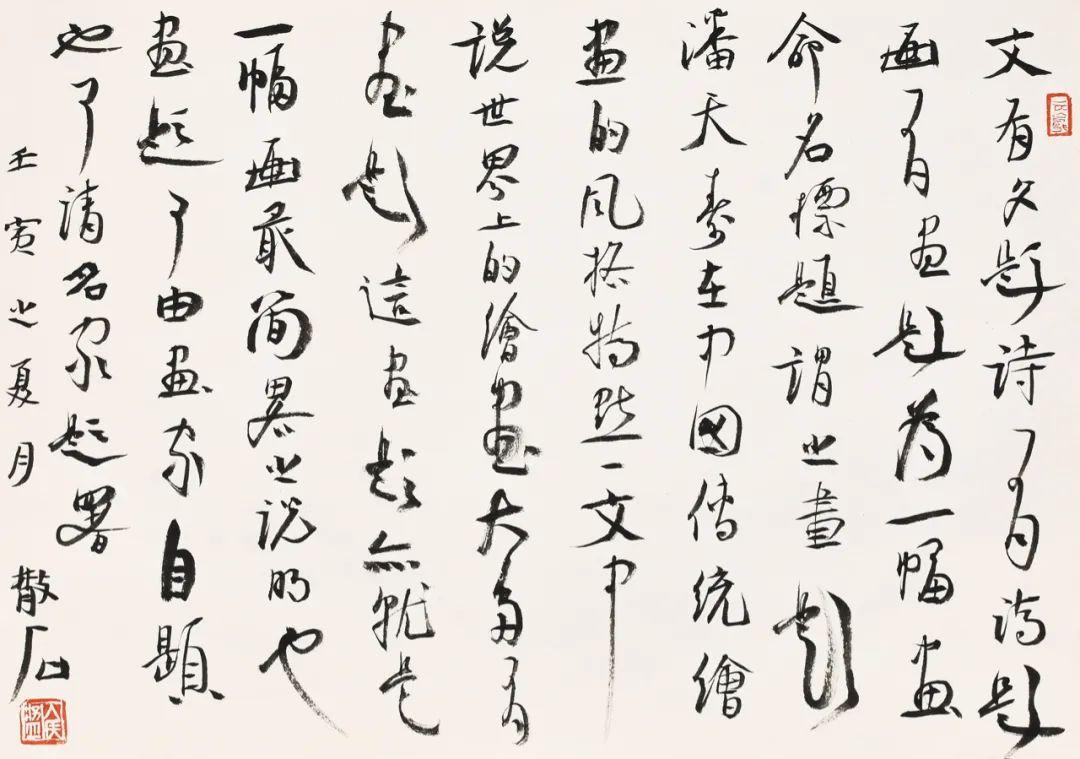 文有文題詩有詩題
畫有畫題為一幅畫
命名標題謂之畫題
潘天壽在中國傳統繪
畫的風格特點一文中
說世界上的繪畫大多有
畫題這畫題亦就是
一幅畫最簡畧之說明也
畫題可由畫家自題
也可請名家題署
壬寅之夏月 散石